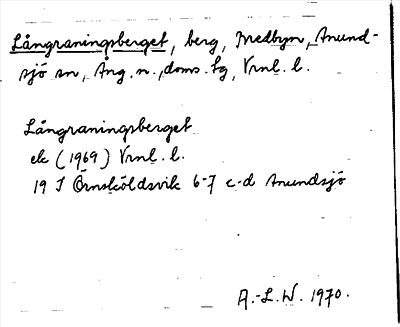 Långraningsberget, berg, Medbyn, Anund-
sjö sn, Ång. n., doms. fg, Vrnl. l.
Långraningsberget
ek (1969) Vrnl. l.
19 I Örnsköldsvik 6-7 c-d Anundsjö
A.-L. W. 1970.